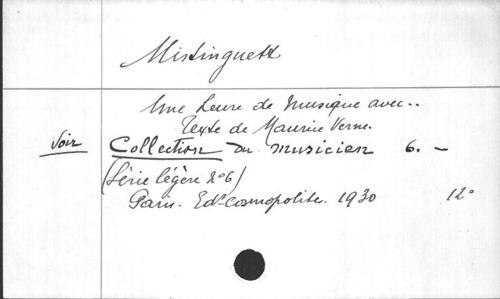 Mistinguett
Une heure de musique avec..
Texte de Maurice Verne.
Voir Collection du musicien 6. -
(Série légère n°6)
Paris. Edᵗ cosmopolite. 1930 12°